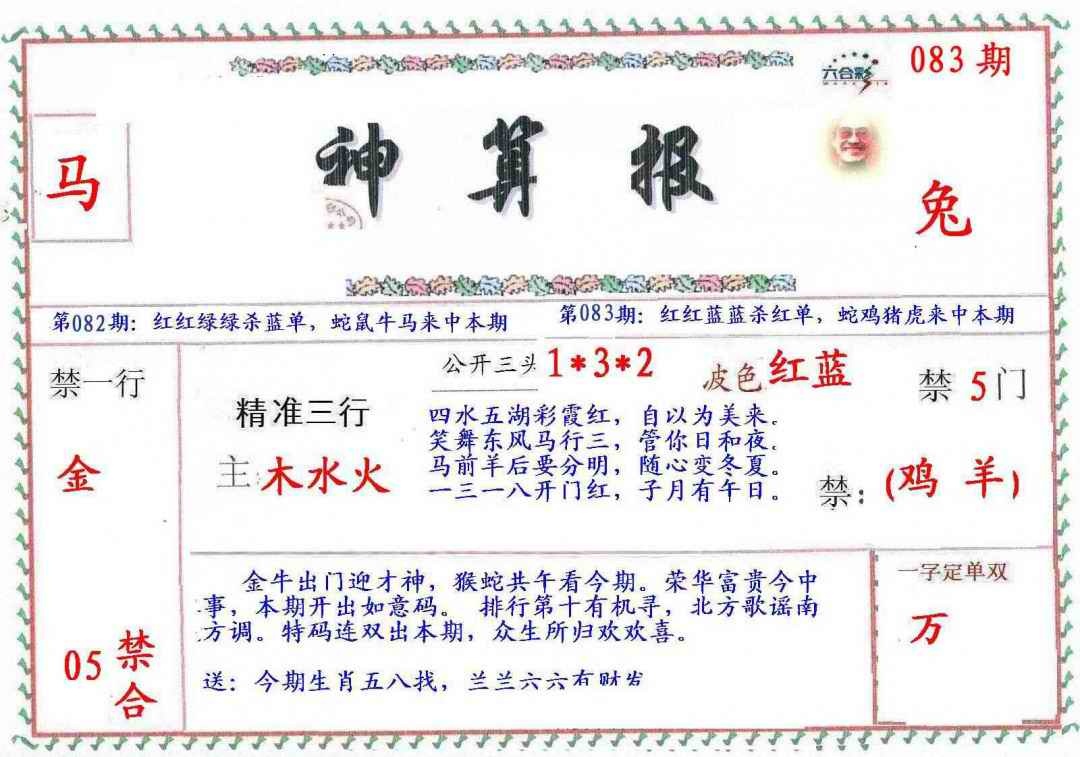 六合彩
083期
马
神算报
兔
第082期：红红绿绿杀蓝单，蛇鼠牛马来中本期
第083期：红红蓝蓝杀红单，蛇鸡猪虎来中本期
禁一行
金
05
禁合
精准三行
主:木水火
公开三头1*3*2
波色红蓝
四水五湖彩霞红，自以为美来。
笑舞东风马行三，管你日和夜。
马前羊后要分明，随心变冬夏。
一三一八开门红，子月有午日。
禁5门
禁:(鸡 羊)
金牛出门迎才神，猴蛇共午看今期。荣华富贵今中
事，本期开出如意码。 排行第十有机寻，北方歌谣南
方调。特码连双出本期，众生所归欢欢喜。
送：今期生肖五八找，兰兰六六有财发
一字定单双
万